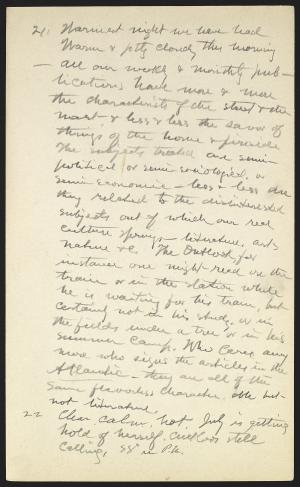 21. Warmest night we have had
Warm & ptly cloudy this morning
— all our weekly & monthly pub-
lications have more & more
the characteristics of the street & the
mart & less & less the savor of
things of the home & fireside
The subjects treated are semi-
political or semi-sociological, or
semi-economic — less & less are
they related to the disinterested
subjects out of which our real
culture springs — literature, art
nature &c. The Outlook for
instance one might read on the
train or in the station while
he is waiting for his train, but
certainly not in his study, or in
the fields under a tree or in his
summer camp. Who cares any
more who signs the articles in the
Atlantic — they are all of the
same flavorless character, able but
not literature.
22 Clear, calm, hot. July is getting
hold of herself. Cuckoos still
calling, 88° in P.M.